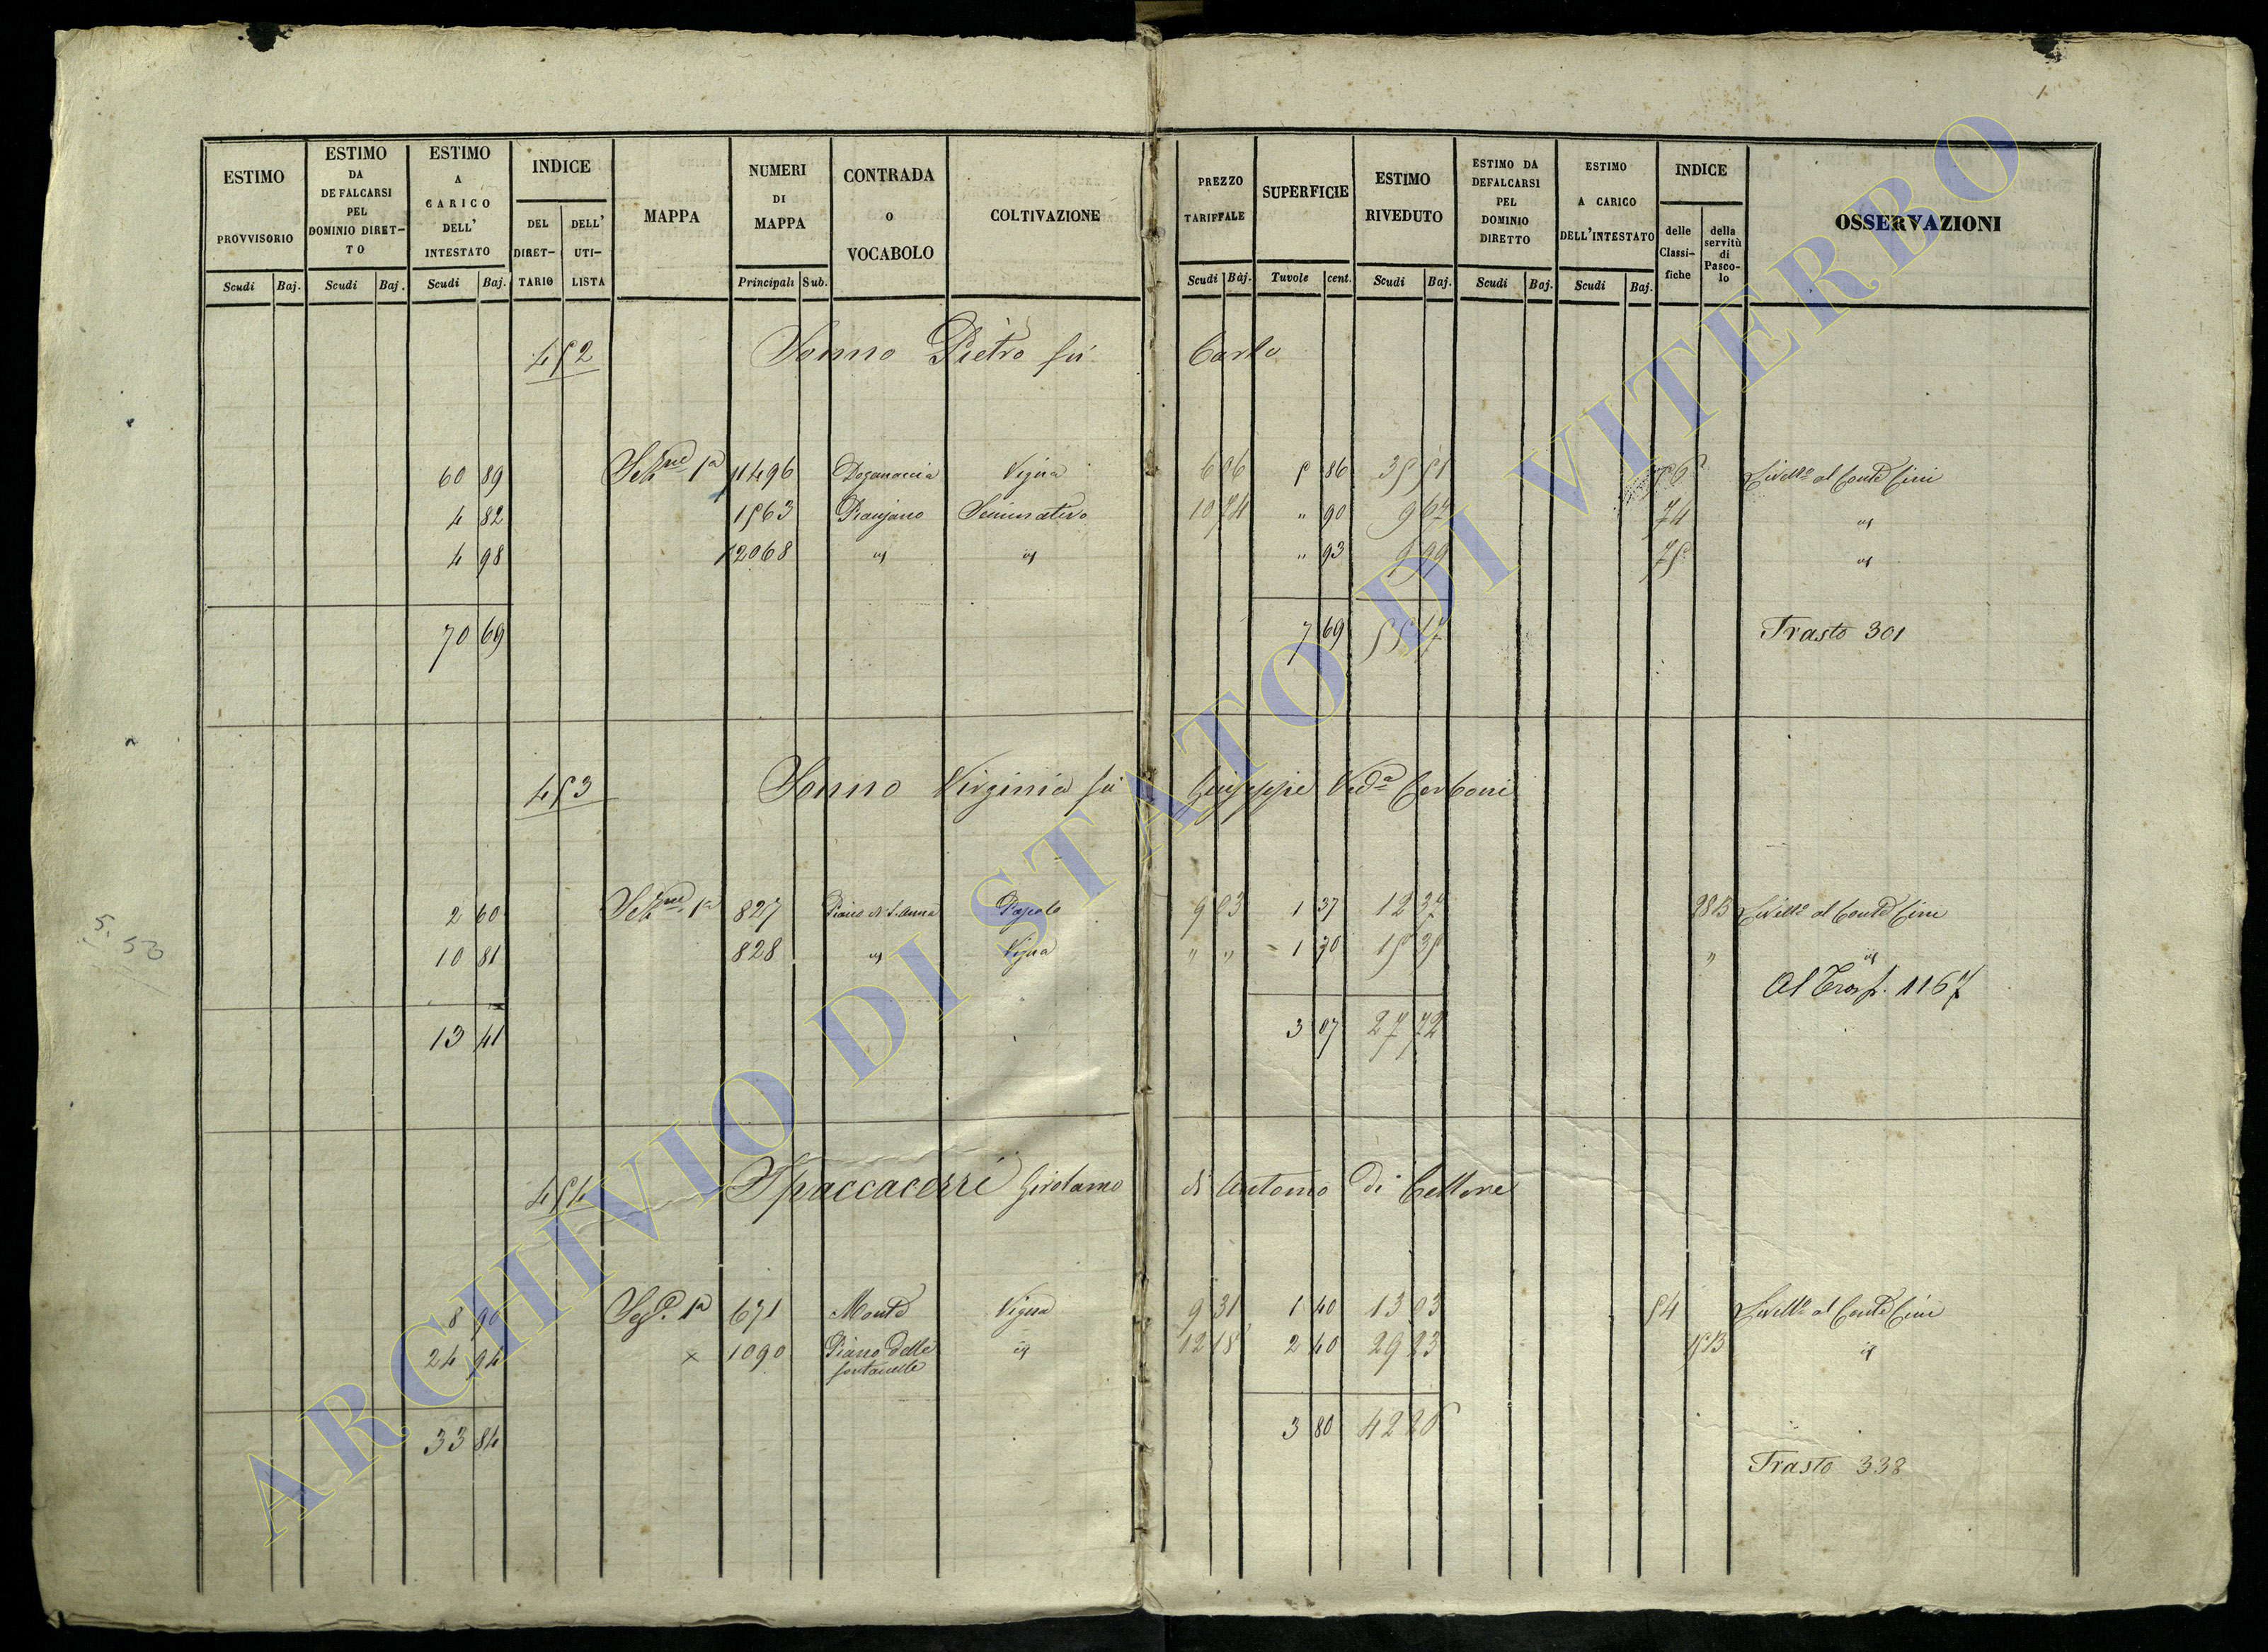 ESTIMO PROVVISORIO | ESTIMO DA DEFALCARSI PEL DOMINIO DIRET-TO | ESTIMO A CARICO DELL' INTESTATO | INDICE DEL DIRET-TARIO | DELL' UTI-LISTA | MAPPA | NUMERI DI MAPPA | CONTRADA O VOCABOLO | COLTIVAZIONE | PREZZO TARIFFALE | SUPERFICIE | ESTIMO RIVEDUTO | ESTIMO DA DEFALCARSI PEL DOMINIO DIRETTO | ESTIMO A CARICO DELL'INTESTATO | INDICE delle Classi-fiche | della servitù di Pasco-lo | OSSERVAZIONI
Scudi Baj. Scudi Baj. Scudi Baj. Principali Sub. Scudi Baj. Tavole cent. Scudi Baj. Scudi Baj. Scudi Baj.
452 Sonno Pietro fu Carlo
60 89 Sez.ne 1a 1496 Doganaccia Vigna 6 06 5 86 35 51 56 Livell.o al Conte Cini
4 82 1563 Pianjano Seminativo 10 74 " 90 9 67 74 id
4 98 2068 id id " 93 9 99 75 id
70 69 7 69 55 17 Trasto 301
453 Sonno Virginia fu Giuseppe Ved.a Carboni
2 60 Sez.ne 1a 827 Piano di S. Anna Pascolo 9 03 1 37 12 37 28B Livell.o al Conte Cini
10 81 828 id Vigna " " 1 70 15 35 " id
Al Trasp. 1167
13 41 3 07 27 72
5.53
454 Spaccacerri Girolamo di Antonio di Cellere
8 90 Sez.e 1a 671 Monte Vigna 9 31 1 40 13 03 54 Livell.o al Conte Cini
24 94 x 1090 Piano delle fontanelle id 12 18 2 40 29 23 15B id
33 84 3 80 42 26
Trasto 338
ARCHIVIO DI STATO DI VITERBO